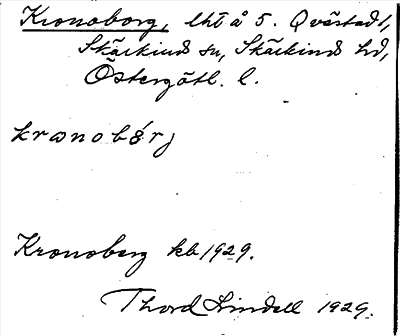 Kronoborg, lht å 5. Qvästad 1,
Skärkind sn, Skärkind hd,
Östergötl. l.
Kronoberg kb 1929.
Thord Lindell 1929.